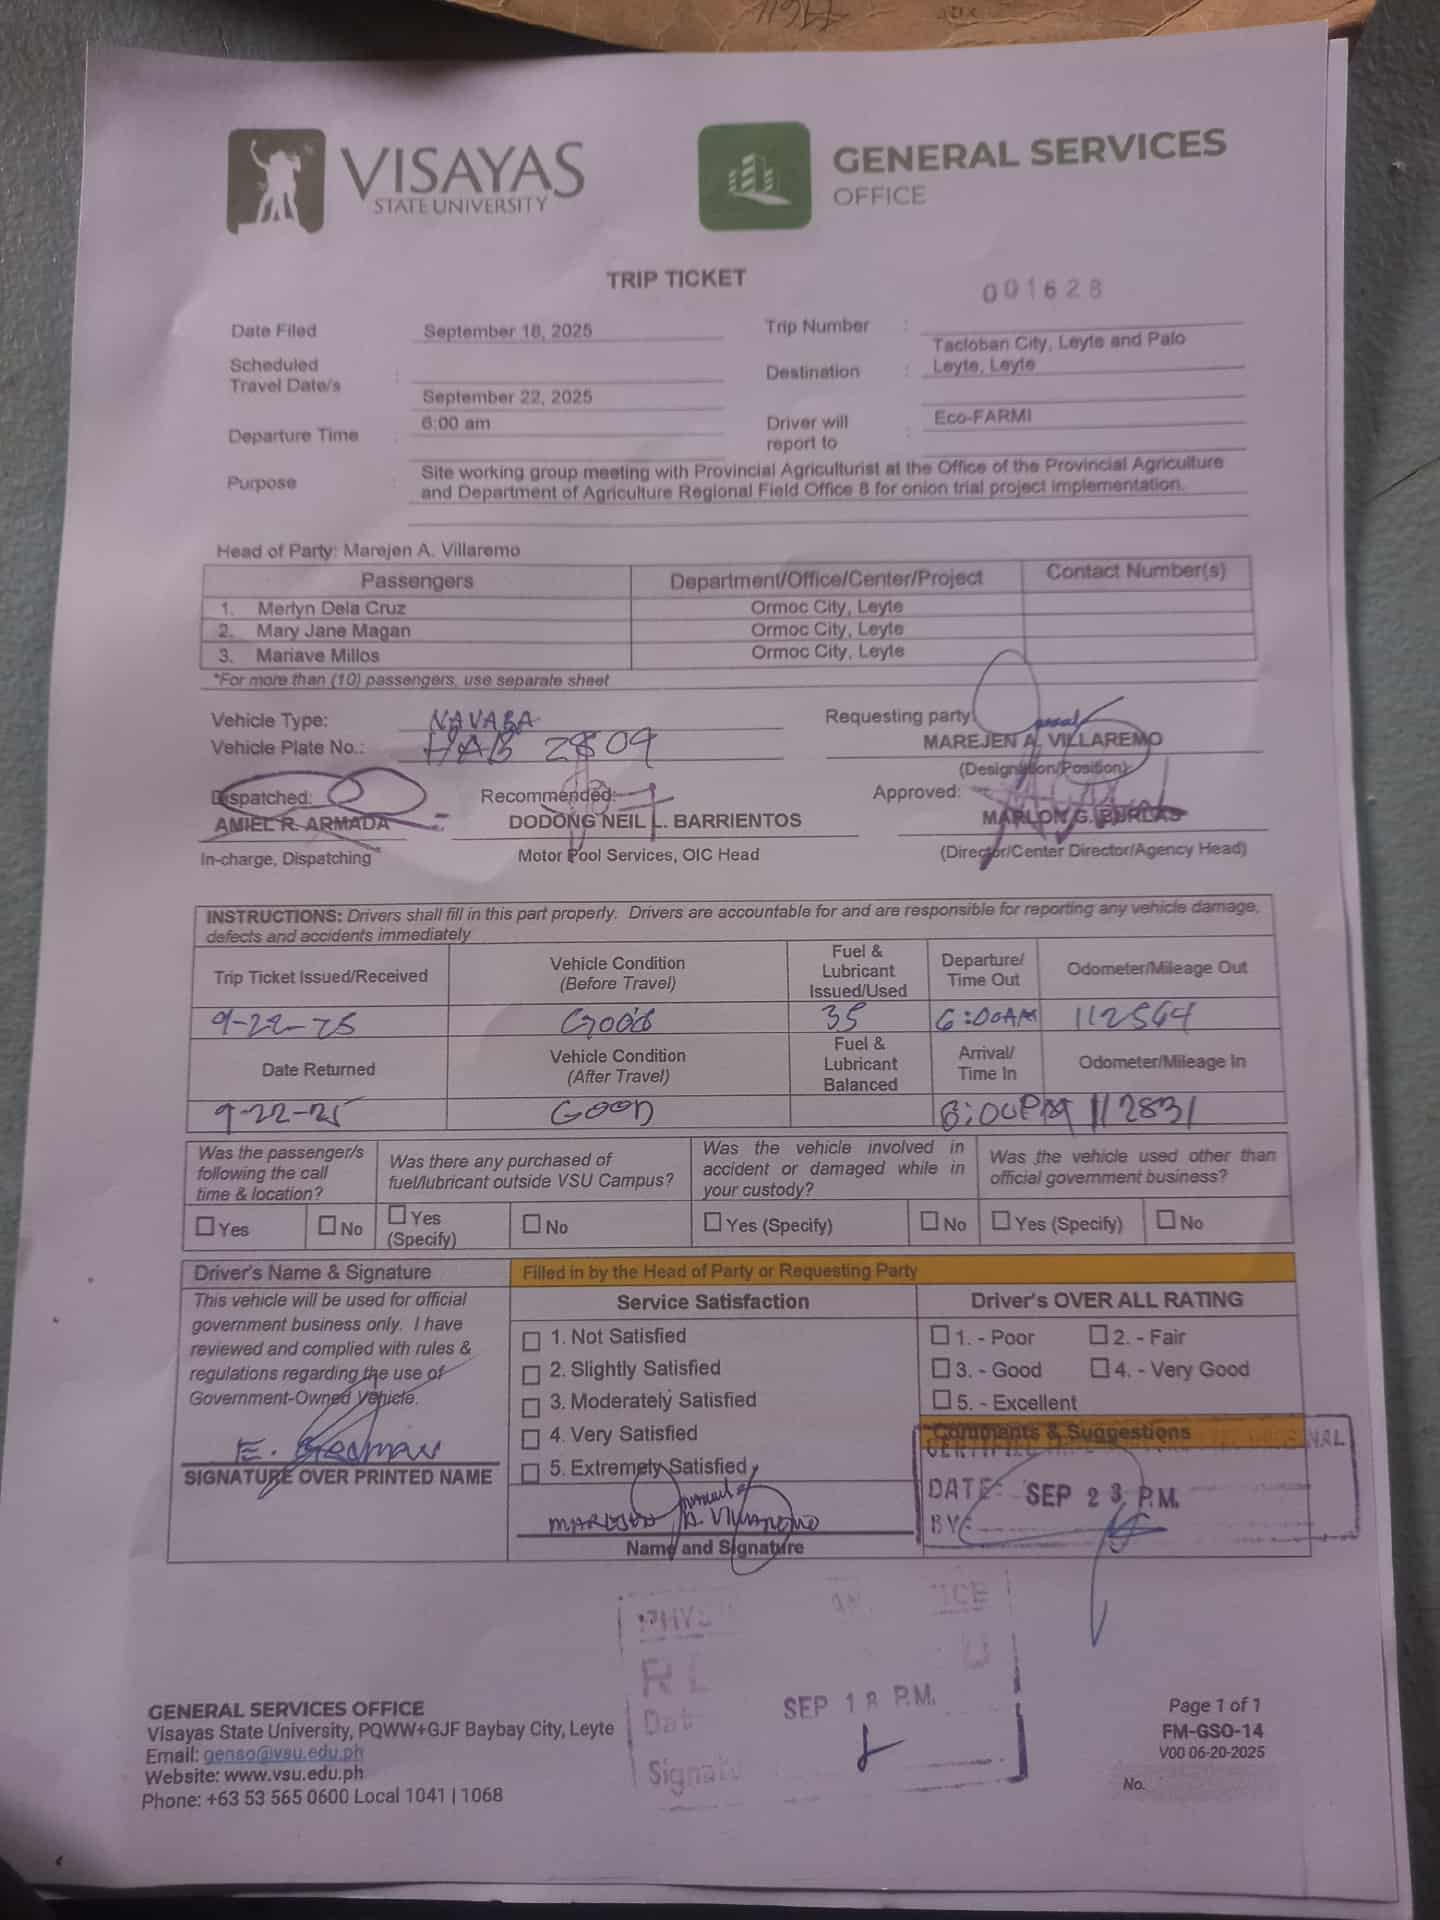 VISAYAS
STATE UNIVERSITY
GENERAL SERVICES
OFFICE
TRIP TICKET
001628
Date Filed September 18, 2025 Trip Number :
Scheduled
Travel Date/s : September 22, 2025
Destination : Tacloban City, Leyte and Palo
Leyte, Leyte
Departure Time : 6:00 am
Driver will
report to : Eco-FARMI
Purpose : Site working group meeting with Provincial Agriculturist at the Office of the Provincial Agriculture
and Department of Agriculture Regional Field Office 8 for onion trial project implementation.
Head of Party: Marejen A. Villaremo
Passengers Department/Office/Center/Project Contact Number(s)
1. Merlyn Dela Cruz Ormoc City, Leyte
2. Mary Jane Magan Ormoc City, Leyte
3. Mariave Millos Ormoc City, Leyte
*For more than (10) passengers, use separate sheet
Vehicle Type: NAVARA
Vehicle Plate No.: HAB 2809
Requesting party:
MAREJEN A. VILLAREMO
(Designation/Position)
Dispatched: Recommended: Approved:
AMIEL R. ARMADA DODONG NEIL L. BARRIENTOS MARLON G. BURLAS
In-charge, Dispatching Motor Pool Services, OIC Head (Director/Center Director/Agency Head)
INSTRUCTIONS: Drivers shall fill in this part properly. Drivers are accountable for and are responsible for reporting any vehicle damage,
defects and accidents immediately
Trip Ticket Issued/Received
Vehicle Condition
(Before Travel)
Fuel &
Lubricant
Issued/Used
Departure/
Time Out
Odometer/Mileage Out
9-22-25 Good 35 6:00AM 112564
Date Returned
Vehicle Condition
(After Travel)
Fuel &
Lubricant
Balanced
Arrival/
Time In
Odometer/Mileage In
9-22-25 GOOD 6:00PM 112831
Was the passenger/s
following the call
time & location?
Was there any purchased of
fuel/lubricant outside VSU Campus?
Was the vehicle involved in
accident or damaged while in
your custody?
Was the vehicle used other than
official government business?
☐ Yes ☐ No ☐ Yes
(Specify) ☐ No ☐ Yes (Specify) ☐ No ☐ Yes (Specify) ☐ No
Driver's Name & Signature
This vehicle will be used for official
government business only. I have
reviewed and complied with rules &
regulations regarding the use of
Government-Owned Vehicle.
E.
SIGNATURE OVER PRINTED NAME
Filled in by the Head of Party or Requesting Party
Service Satisfaction
☐ 1. Not Satisfied
☐ 2. Slightly Satisfied
☐ 3. Moderately Satisfied
☐ 4. Very Satisfied
☐ 5. Extremely Satisfied
MAREJEN A. VILLAREMO
Name and Signature
Driver's OVER ALL RATING
☐ 1. - Poor ☐ 2. - Fair
☐ 3. - Good ☐ 4. - Very Good
☐ 5. - Excellent
Comments & Suggestions
DATE: SEP 23 P.M.
BY:
SEP 18 P.M.
GENERAL SERVICES OFFICE
Visayas State University, PQWW+GJF Baybay City, Leyte
Email: genso@vsu.edu.ph
Website: www.vsu.edu.ph
Phone: +63 53 565 0600 Local 1041 | 1068
Page 1 of 1
FM-GSO-14
V00 06-20-2025
No.